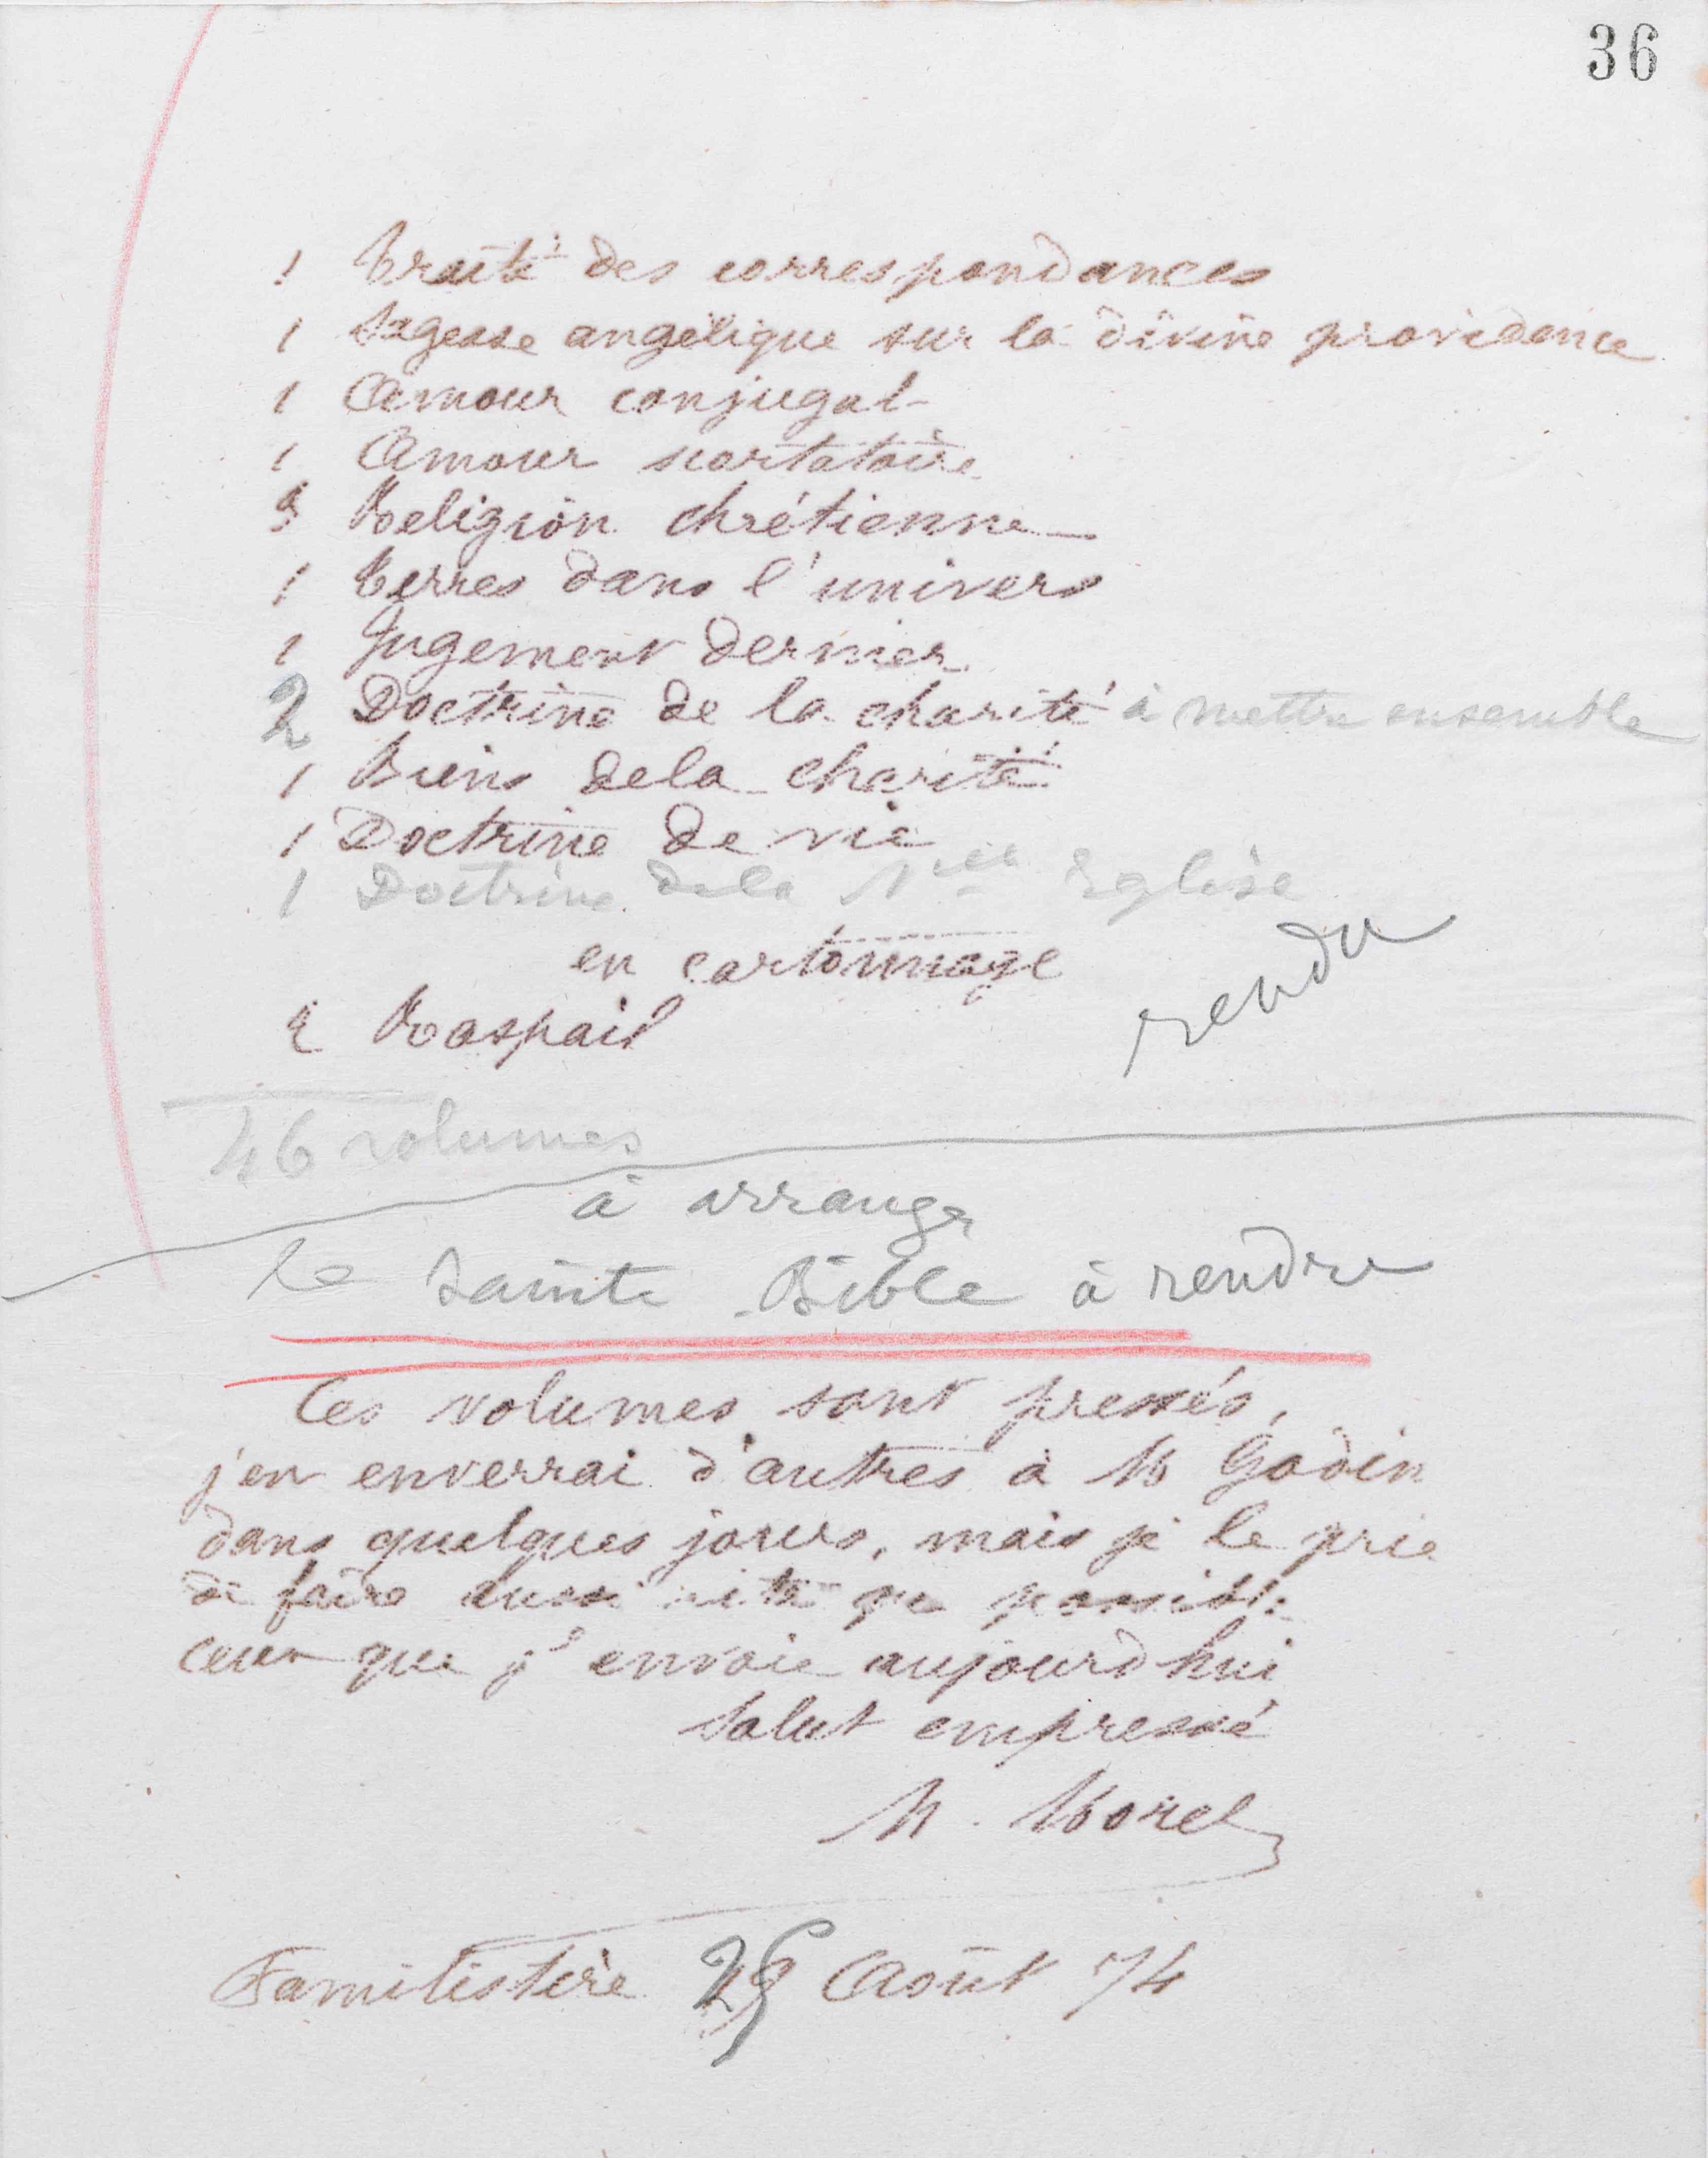 36
1 Traité des correspondances
1 Sagesse angélique sur la divine providence
1 Amour conjugal
1 Amour scortatoire
3 Religion chrétienne
1 Terres dans l'univers
1 Jugement dernier
2 Doctrine de la charité à mettre ensemble
1 Biens de la charité
1 Doctrine de vie
1 Doctrine de la Nlle Eglise
en cartonnage
rendu
2 Raspail
46 volumes
à arranger
la Sainte Bible à rendre
Ces volumes sont pressés,
j'en enverrai d'autres à M Godin
dans quelques jours, mais je le prie
de faire aussi vite que possible
ceux que j'envoie aujourd'hui
Salut empressé
M. Morel
Familistère 25 Août 74